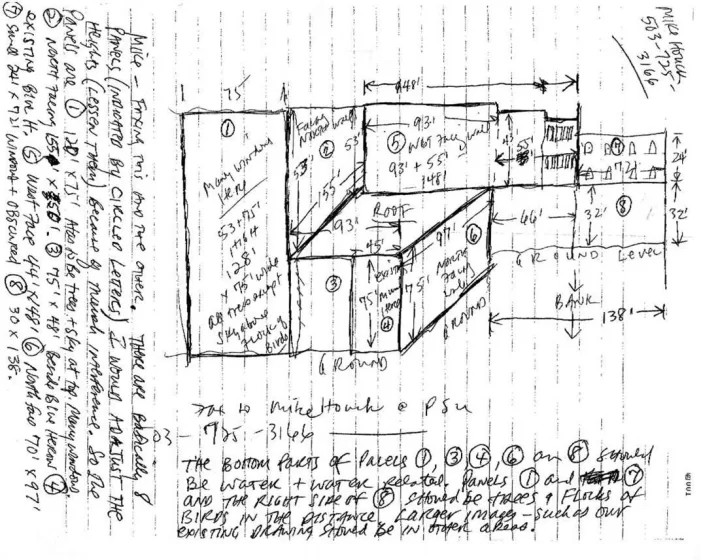 Mike Houck
503-725-
3166
148'
75'
①
Many windows
Here
53+75'
High
128'
x 75' wide
Facing
North wall
②
53'
53'
155'
93'
⑤ West Face wall
93' + 55'
148'
45'
55'
⑦
72'
24'
⑧
32'
32'
ROOF
93'
45'
97'
⑥
66'
GROUND Level
BANK
138'
③
existing
75' mural
④
75'
North
Facing
wall
GROUND
GROUND
Fax to Mike Houck @ PSU
03-725-3166
THE BOTTOM PARTS OF PANELS ①, ③ ④, ⑥ and ⑧ should
BE WATER + WATER RELATED. PANELS ① and ⑦
AND THE RIGHT SIDE OF ⑧ should be trees & Flocks of
BIRDS IN THE DISTANCE. LARGER images - such as our
existing DRAWING should BE IN other areas.
Mike - Faxing this and the other. There are Basically 8
PANELS (INDICATED BY CIRCLED LETTERS) I would ADJUST THE
Heights (Lessen them) Because of mural interference. So the
Panels are ① 128' x 75' Also to be trees + sky at top. Many windows
② North facing 155' x 53'. ③ 75' x 48' Beside Blue Heron ④
existing Blue H. ⑤ West Face 44' x 148' ⑥ North face 70' x 97'
⑦ Small 24' x 72' windows + obscured ⑧ 30 x 138.